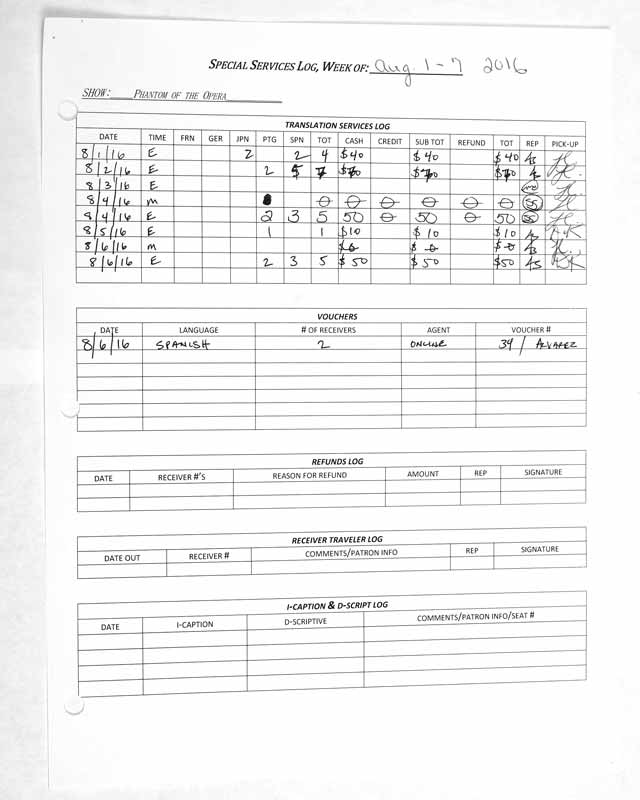 SPECIAL SERVICES LOG, WEEK OF: Aug. 1-7 2016
SHOW: PHANTOM OF THE OPERA
TRANSLATION SERVICES LOG
DATE TIME FRN GER JPN PTG SPN TOT CASH CREDIT SUB TOT REFUND TOT REP PICK-UP
8/1/16 E 2 2 4 $40 $40 $40
8/2/16 E 2 5 7 $70 $70 $70
8/3/16 E
8/4/16 M 0 0 0 0 0 0 0 SS
8/4/16 E 2 3 5 50 0 50 0 50 SS
8/5/16 E 1 1 $10 $10 $10
8/6/16 M $0 $0 $0
8/6/16 E 2 3 5 $50 $50 $50
VOUCHERS
DATE LANGUAGE # OF RECEIVERS AGENT VOUCHER #
8/6/16 SPANISH 2 ONLINE 34 / ALVAREZ
REFUNDS LOG
DATE RECEIVER #'S REASON FOR REFUND AMOUNT REP SIGNATURE
RECEIVER TRAVELER LOG
DATE OUT RECEIVER # COMMENTS/PATRON INFO REP SIGNATURE
I-CAPTION & D-SCRIPT LOG
DATE I-CAPTION D-SCRIPTIVE COMMENTS/PATRON INFO/SEAT #